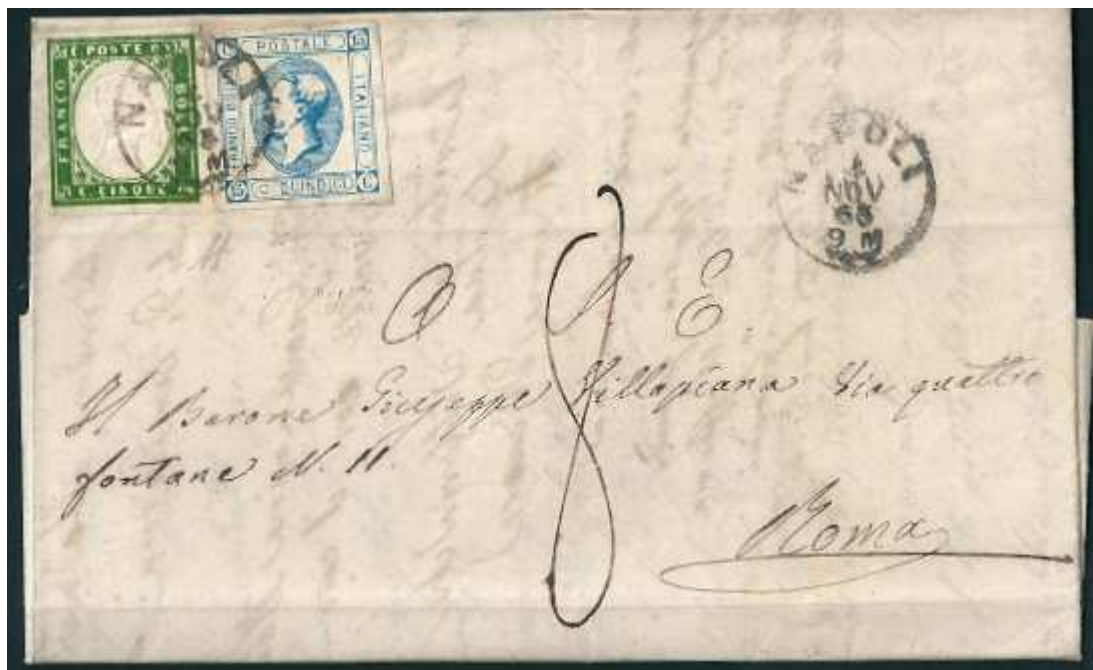 C. POSTE
FRANCO
BOLLO
C. CINQUE
POSTALE
15
FRANCO
ITALIANO
15
C. QUINDICI
NAPOLI
NAPOLI
4
NOV
63
9 M
A S. E.
8
Il Barone Giuseppe Villapiana Via quattro
fontane N. 11.
Roma